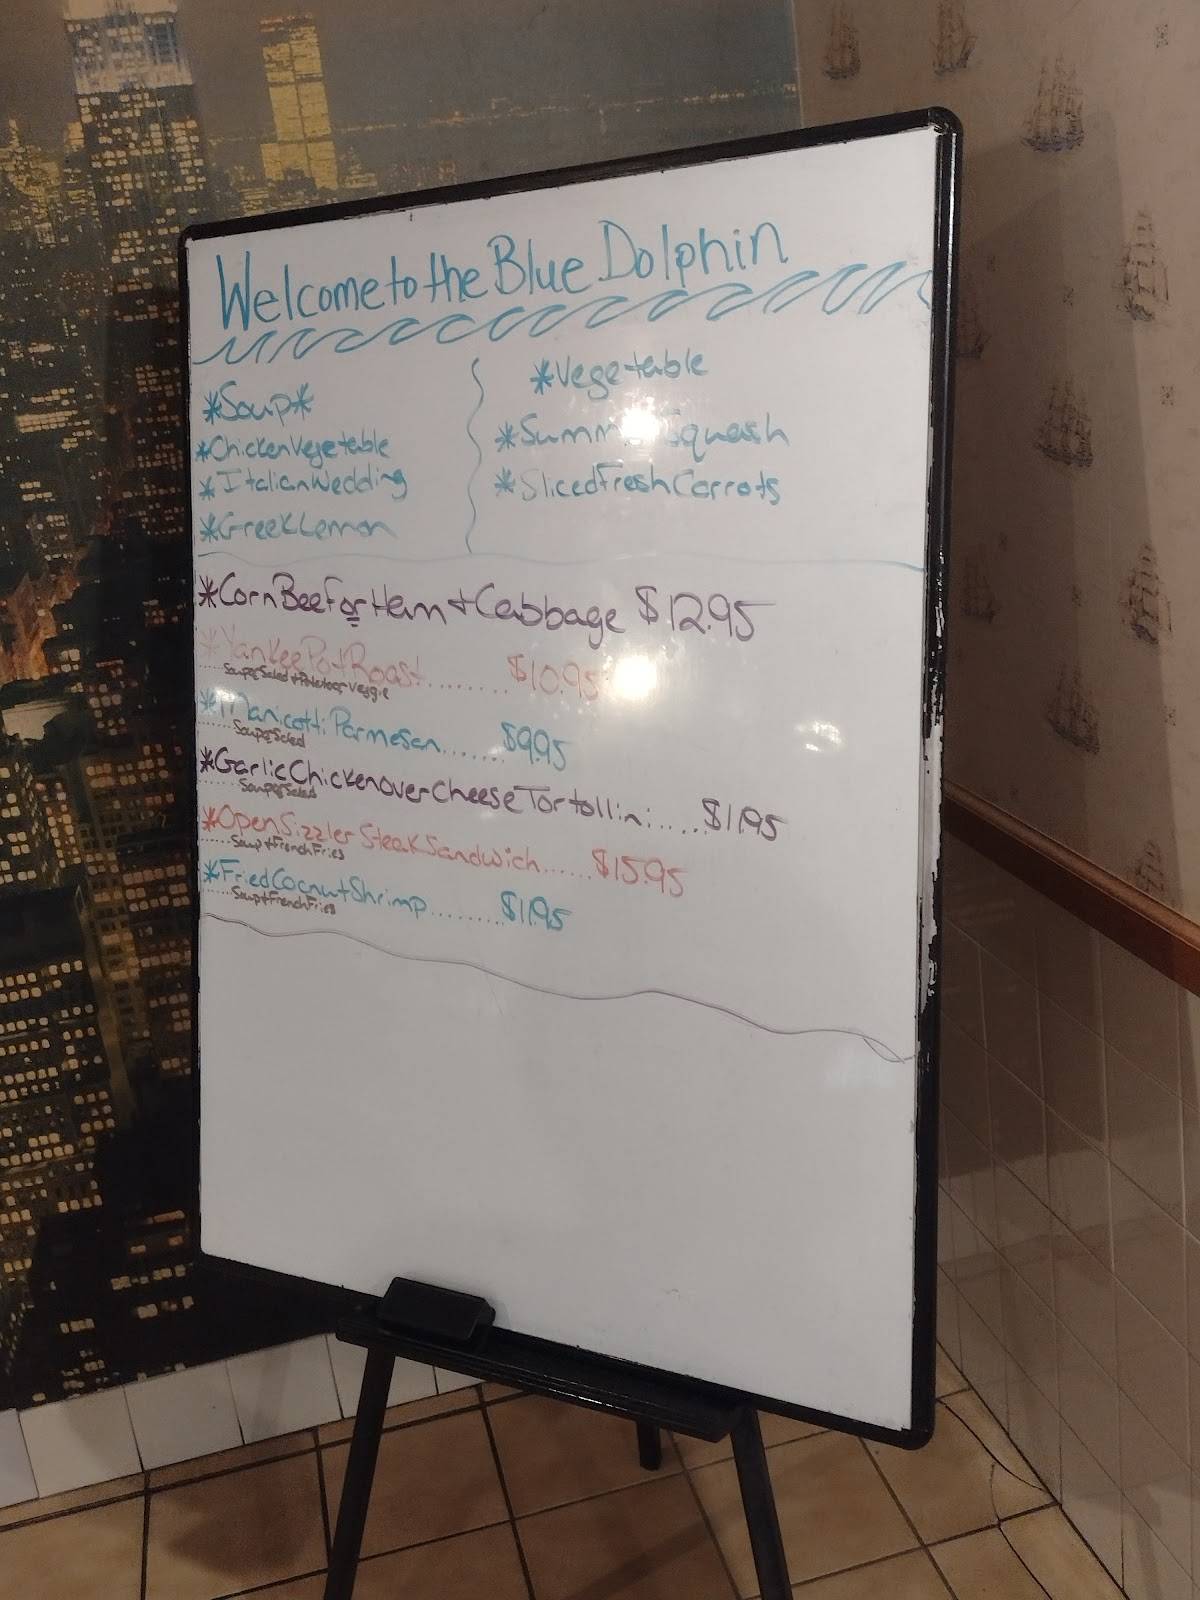 Welcome to the Blue Dolphin
*Soup*
*Chicken Vegetable
*Italian Wedding
*Greek Lemon
*Vegetable
*Summer Squash
*Sliced Fresh Carrots
*Corn Beef or Ham + Cabbage $12.95
*Yankee Pot Roast........ $10.95
......Soup or Salad + Potato or Veggie
*Manicotti Parmesan....... $9.95
......Soup or Salad
*Garlic Chicken over Cheese Tortollini..... $11.95
......Soup or Salad
*Open Sizzler Steak Sandwich...... $15.95
......Soup + French Fries
*Fried Cocnut Shrimp......... $11.95
......Soup + French Fries